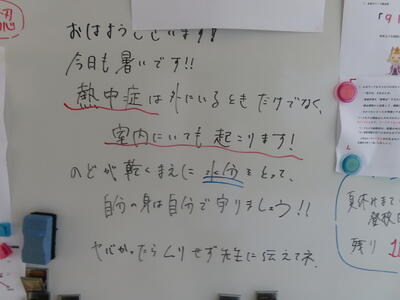 おはようございます!
今日も暑いです!!
熱中症は外にいるときだけでなく、
室内にいても起こります!
のどが乾くまえに水分をとって、
自分の身は自分で守りましょう!!
ヤバかったらムリせず先生に伝えてネ.
夏休みまで
登校日
残り